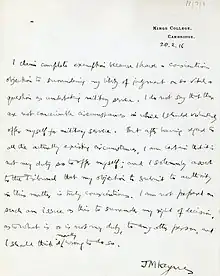 KING'S COLLEGE,
CAMBRIDGE.
28.2.16
I claim complete exemption because I have a conscientious
objection to surrendering my liberty of judgment on so vital a
question as undertaking military service. I do not say that there
are not conceivable circumstances in which I should voluntarily
offer myself for military service. But after having regard to
all the actually existing circumstances, I am certain that it is
not my duty so to offer myself; and I solemnly assert
to the Tribunal that my objection to submit to authority
in this matter is truly conscientious. I am not prepared on
such an issue as this to surrender my right of decision,
as to what is or is not my duty, to any other person, and
I should think it morally wrong to do so.
JM Keynes